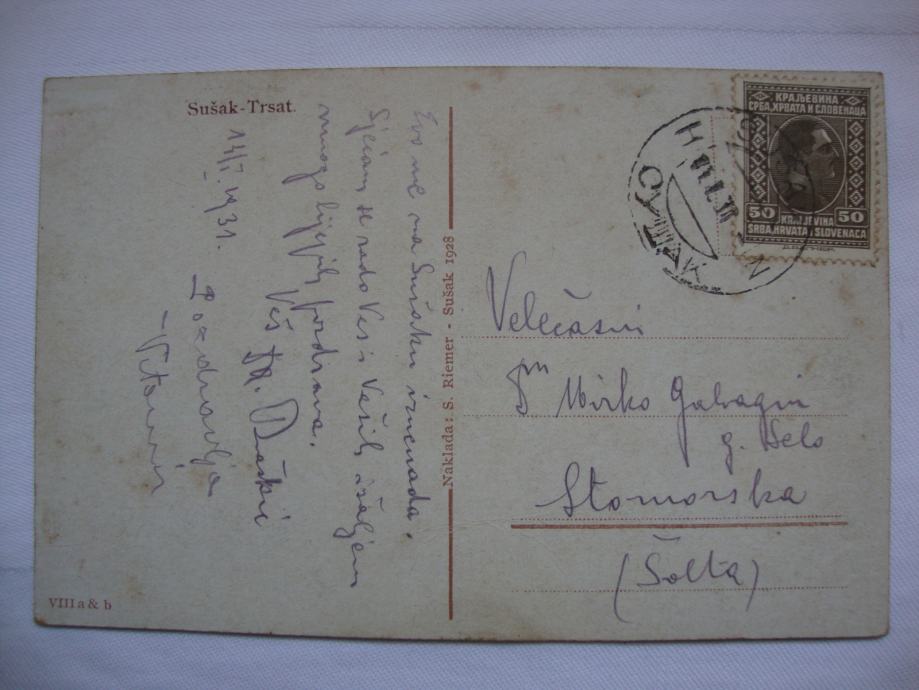 Sušak-Trsat.
14/I. 1931.
Evo me na Sušaku iznenada.
Sjećam se rado Vas i Vaših i šaljem
mnogo lijepih pozdrava.
Vaš
Pozdravlja
Naklada: S. Riemer - Sušak 1928
VIII a & b
КРАЉЕВИНА
СРБА, ХРВАТА И СЛОВЕНАЦА
50 50
KRALJEVINA
SRBA, HRVATA I SLOVENACA
СУШАК
Velečasni
Mirko
g. Selo
Stomorska
(Šolta)